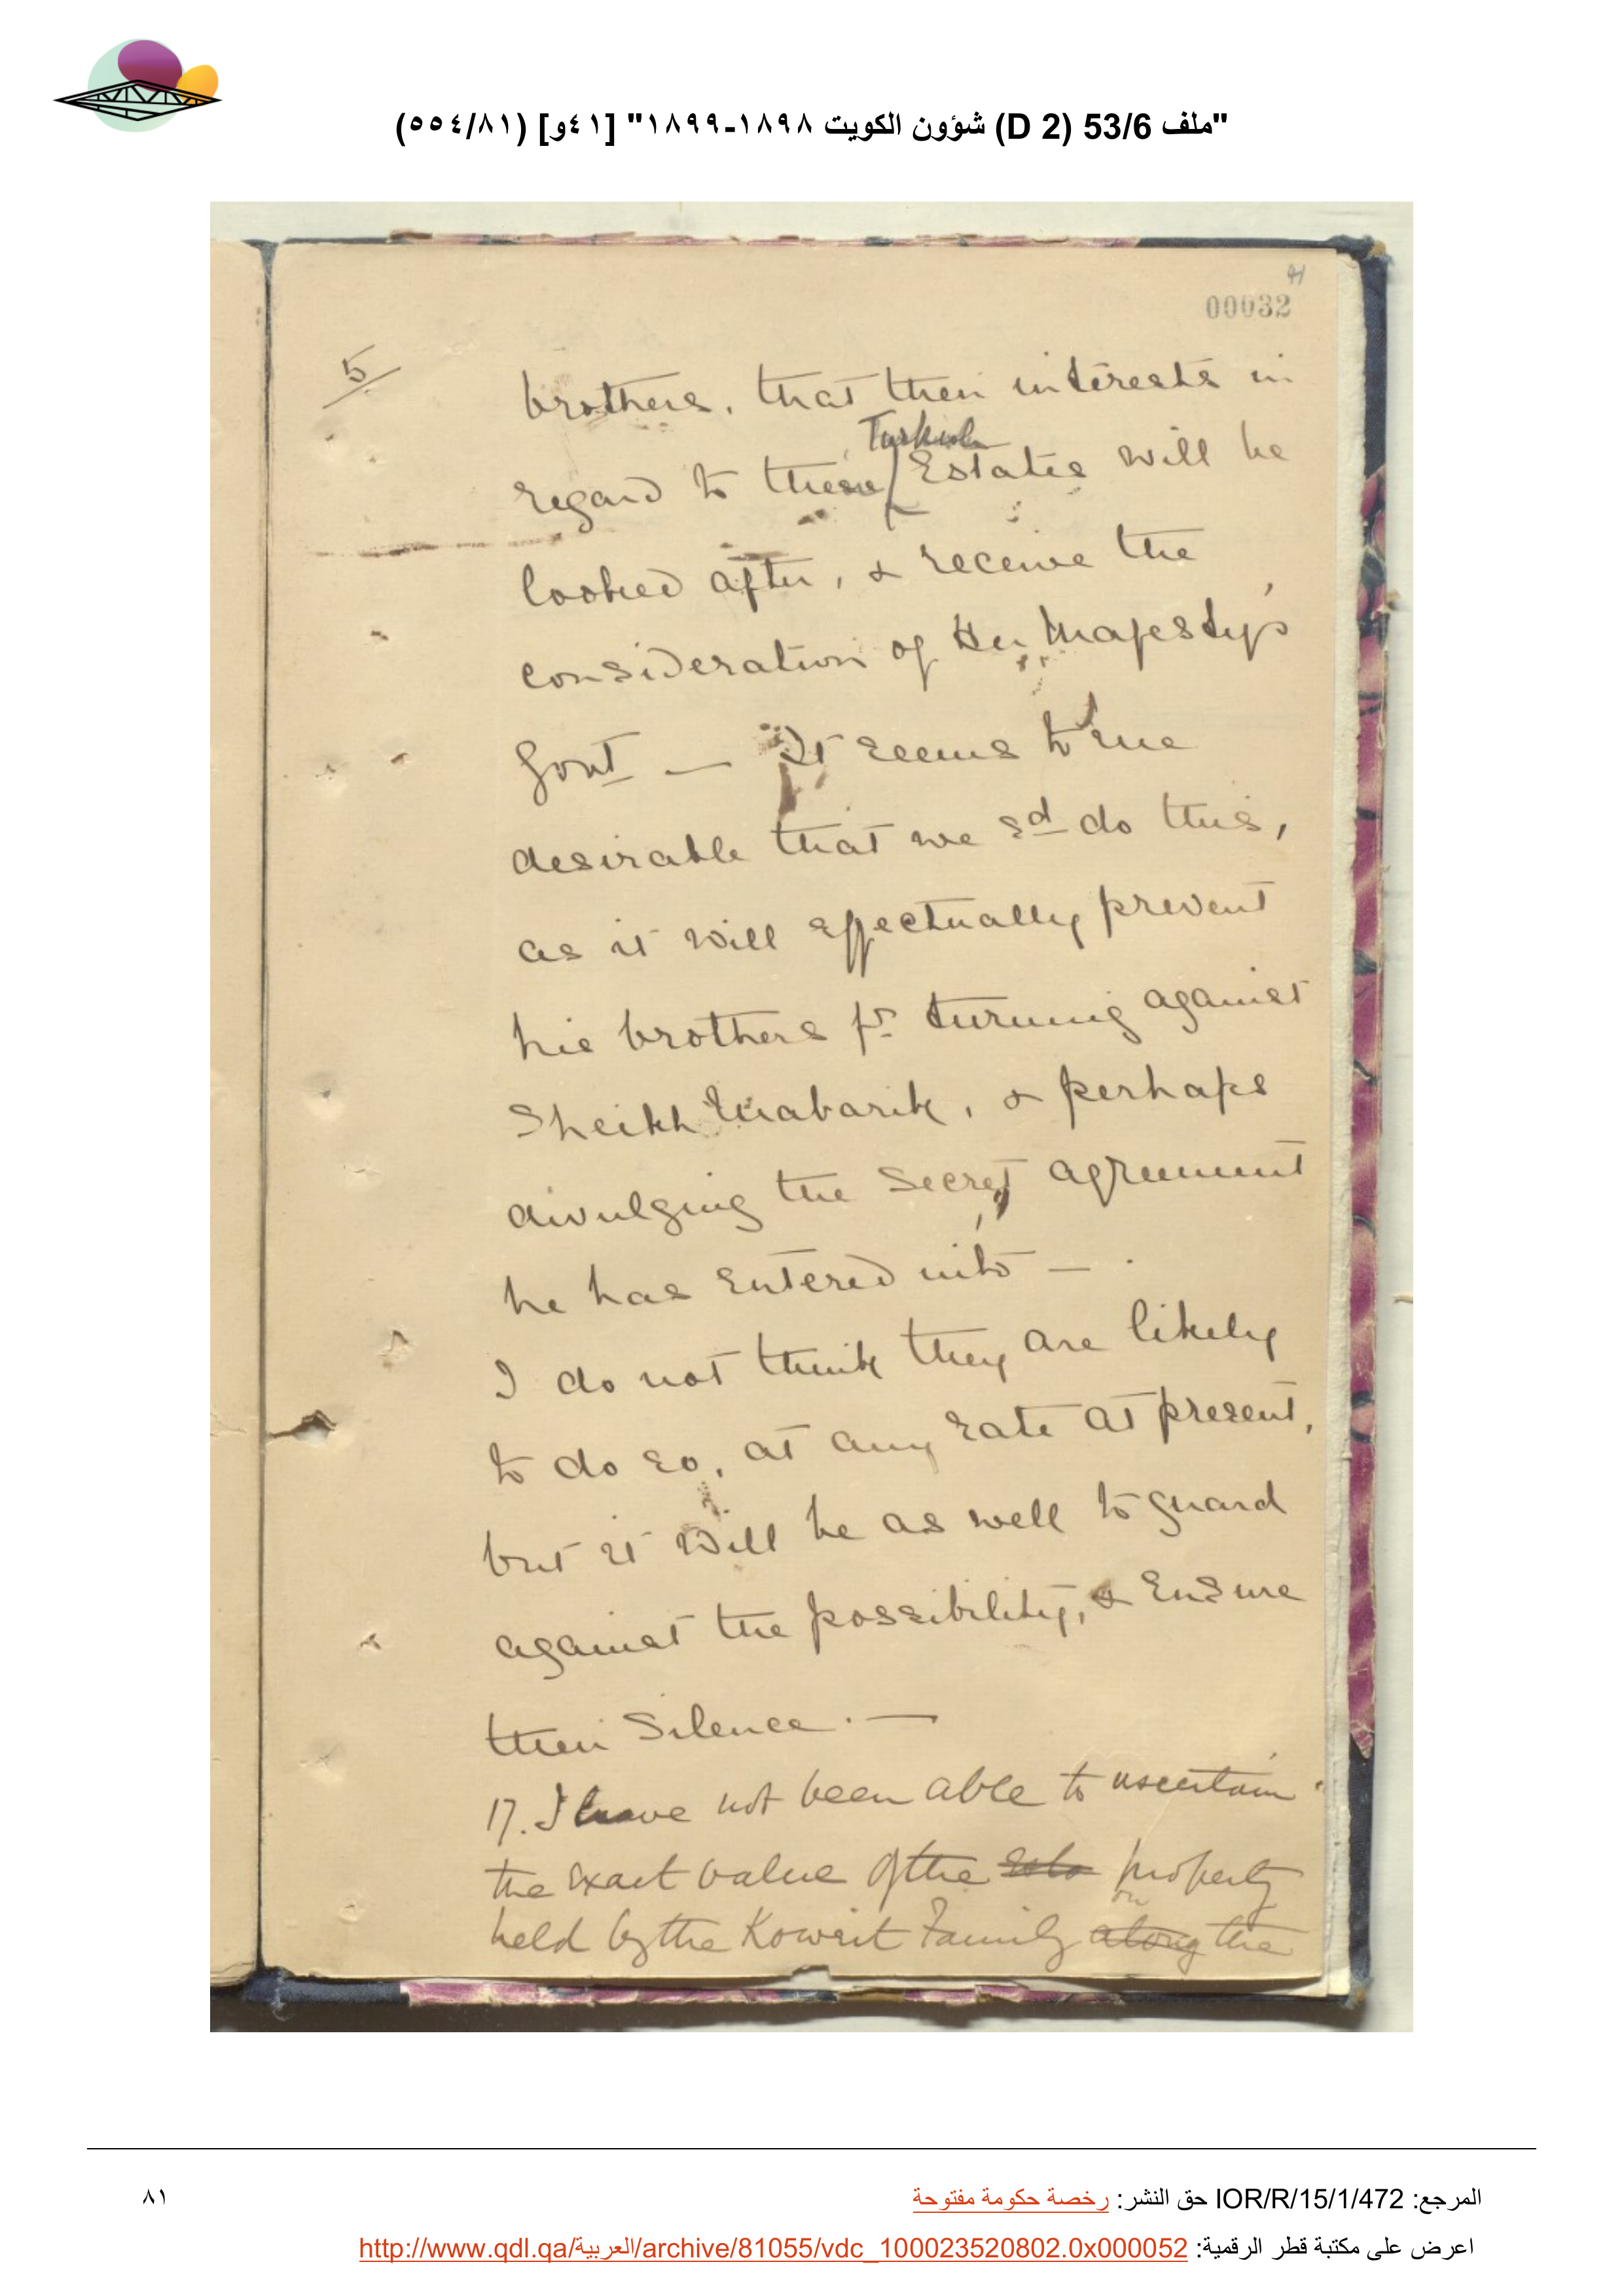 "ملف 53/6 (D 2) شؤون الكويت ١٨٩٨-١٨٩٩" [٤١و] (٥٥٤/٨١)
41
00032
5/
brothers, that their interests in
Turkish
regard to these Estates will be
looked after, & receive the
consideration of Her Majesty's
Govt — It seems to me
desirable that we sd do this,
as it will effectually prevent
his brothers fr turning against
Sheikh Mabarik, & perhaps
divulging the secret agreement
he has entered into —
I do not think they are likely
to do so, at any rate at present,
but it will be as well to guard
against the possibility, & Ensure
their Silence. —
17. I have not been able to ascertain
the exact value of the property
on
held by the Koweit Family along the
المرجع: IOR/R/15/1/472 حق النشر: رخصة حكومة مفتوحة
٨١
اعرض على مكتبة قطر الرقمية: http://www.qdl.qa/العربية/archive/81055/vdc_100023520802.0x000052